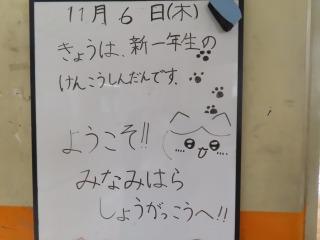 11月6日(木)
きょうは、新一年生の
けんこうしんだんです。
ようこそ!!
みなみはら
しょうがっこうへ!!